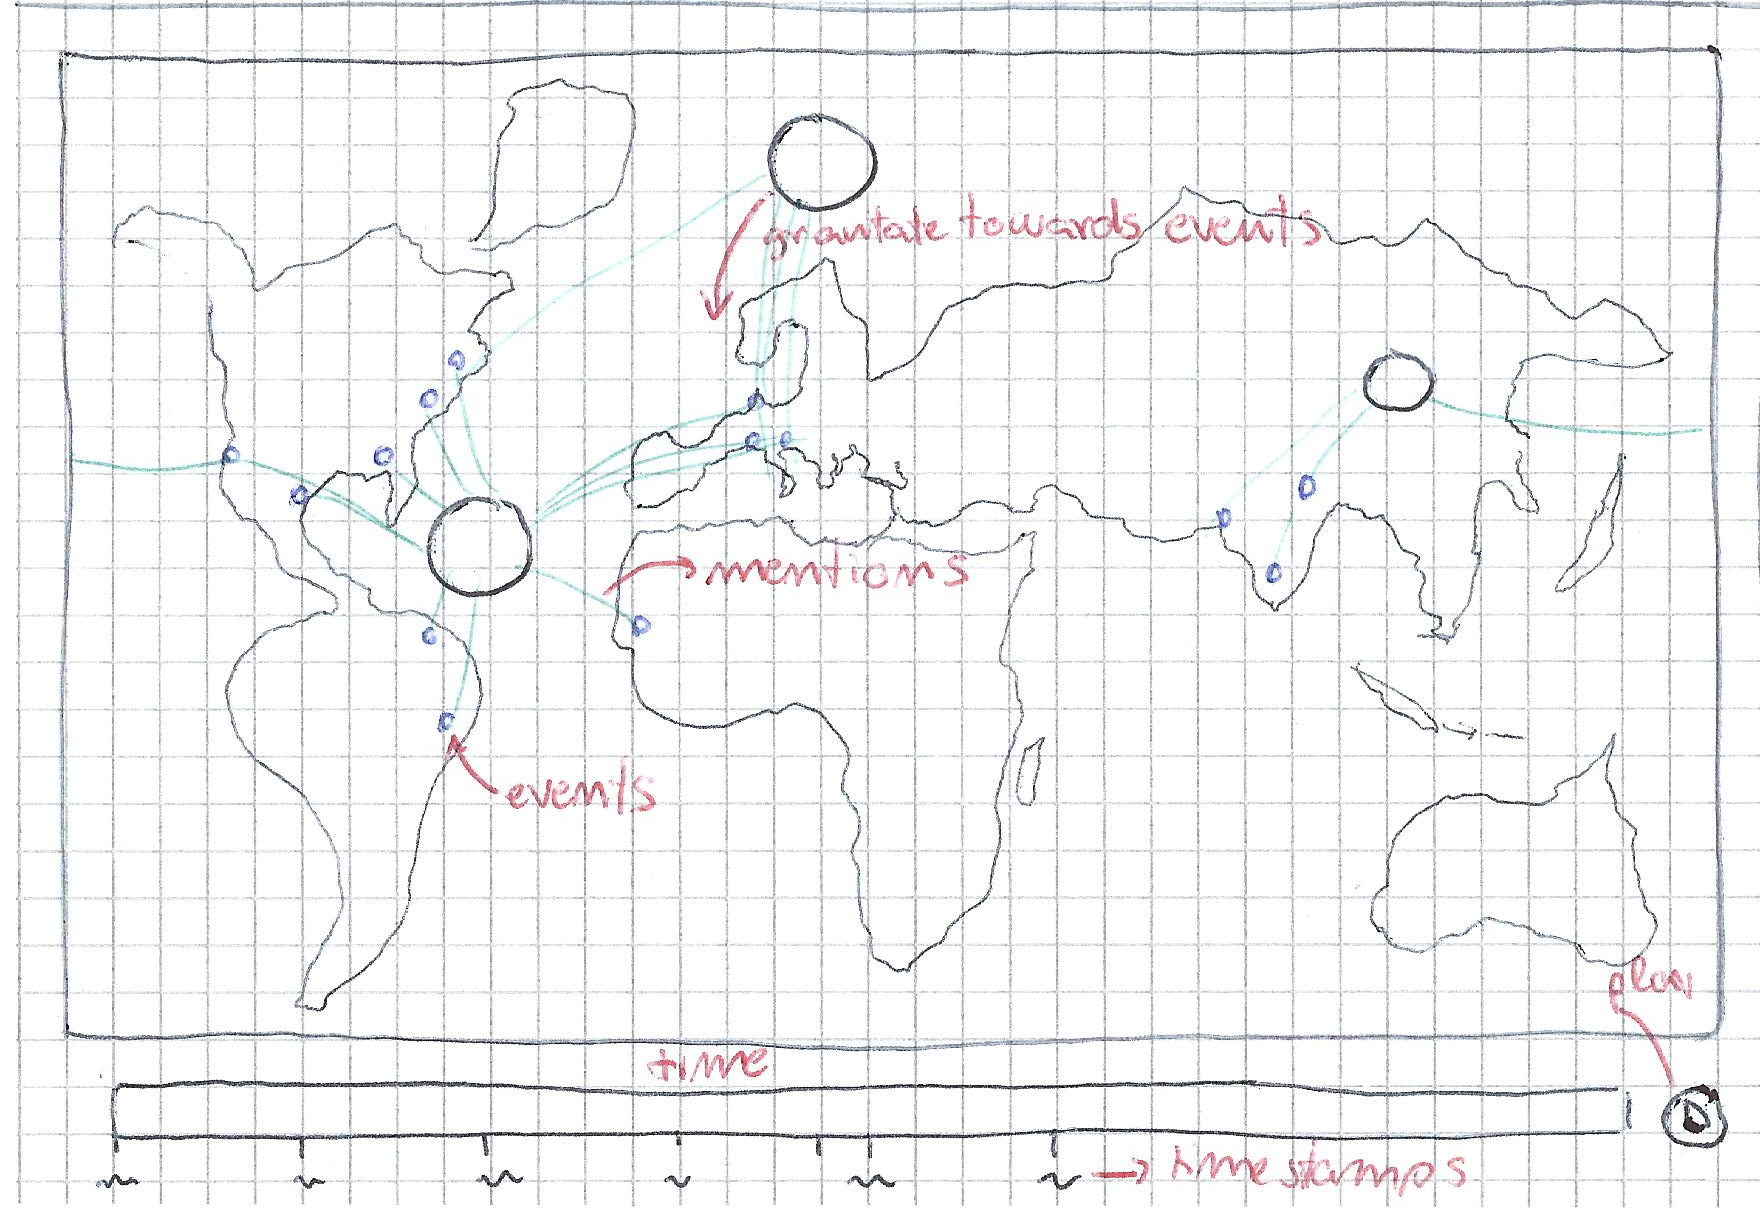 gravitate towards events
mentions
events
play
time
timestamps